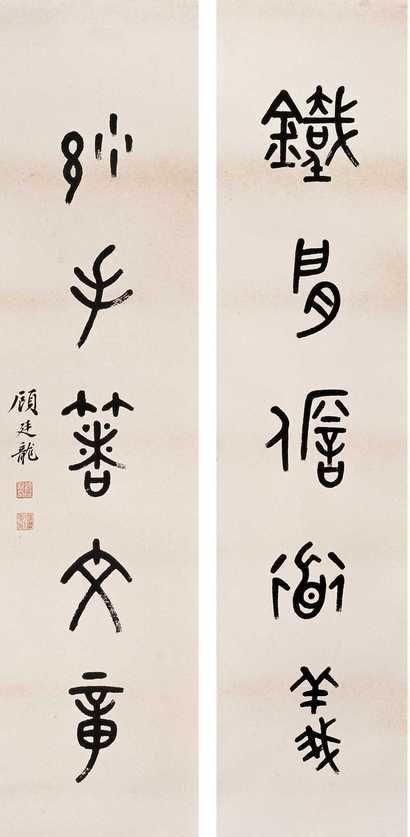 鐵肩儋道義
妙手著文章
顧廷龍